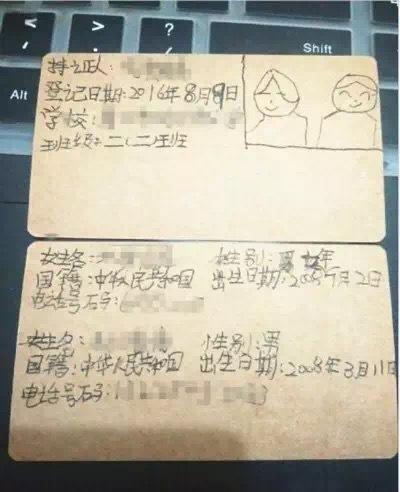 < > ?
, . /
Shift
Alt
持证人:
登记日期:2016年8月9日
学校:
班级:二(二)班
姓名: 性别: 女
国籍:中华人民共和国 出生日期:2008年7月2日
电话号码:
姓名: 性别:男
国籍:中华人民共和国 出生日期:2008年3月11日
电话号码: